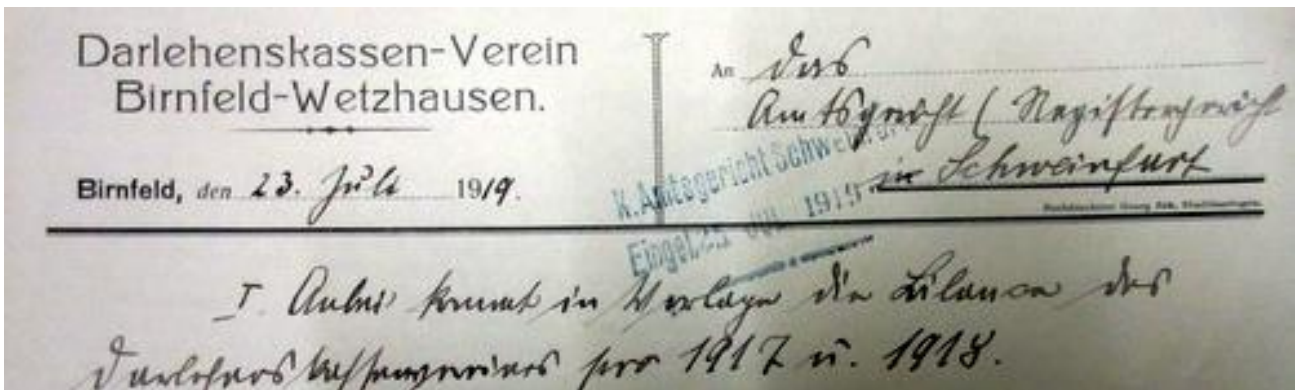 Darlehenskassen-Verein
Birnfeld-Wetzhausen.
Birnfeld, den 23. Juli 1919.
An das
Amtsgericht (Registergericht
in Schweinfurt
K. Amtsgericht Schweinfurt
Eingel. 25 JUL. 1919
I. Anbei kommt in Vorlage die Bilance des
Darlehenskassenvereines pro 1917 u. 1918.